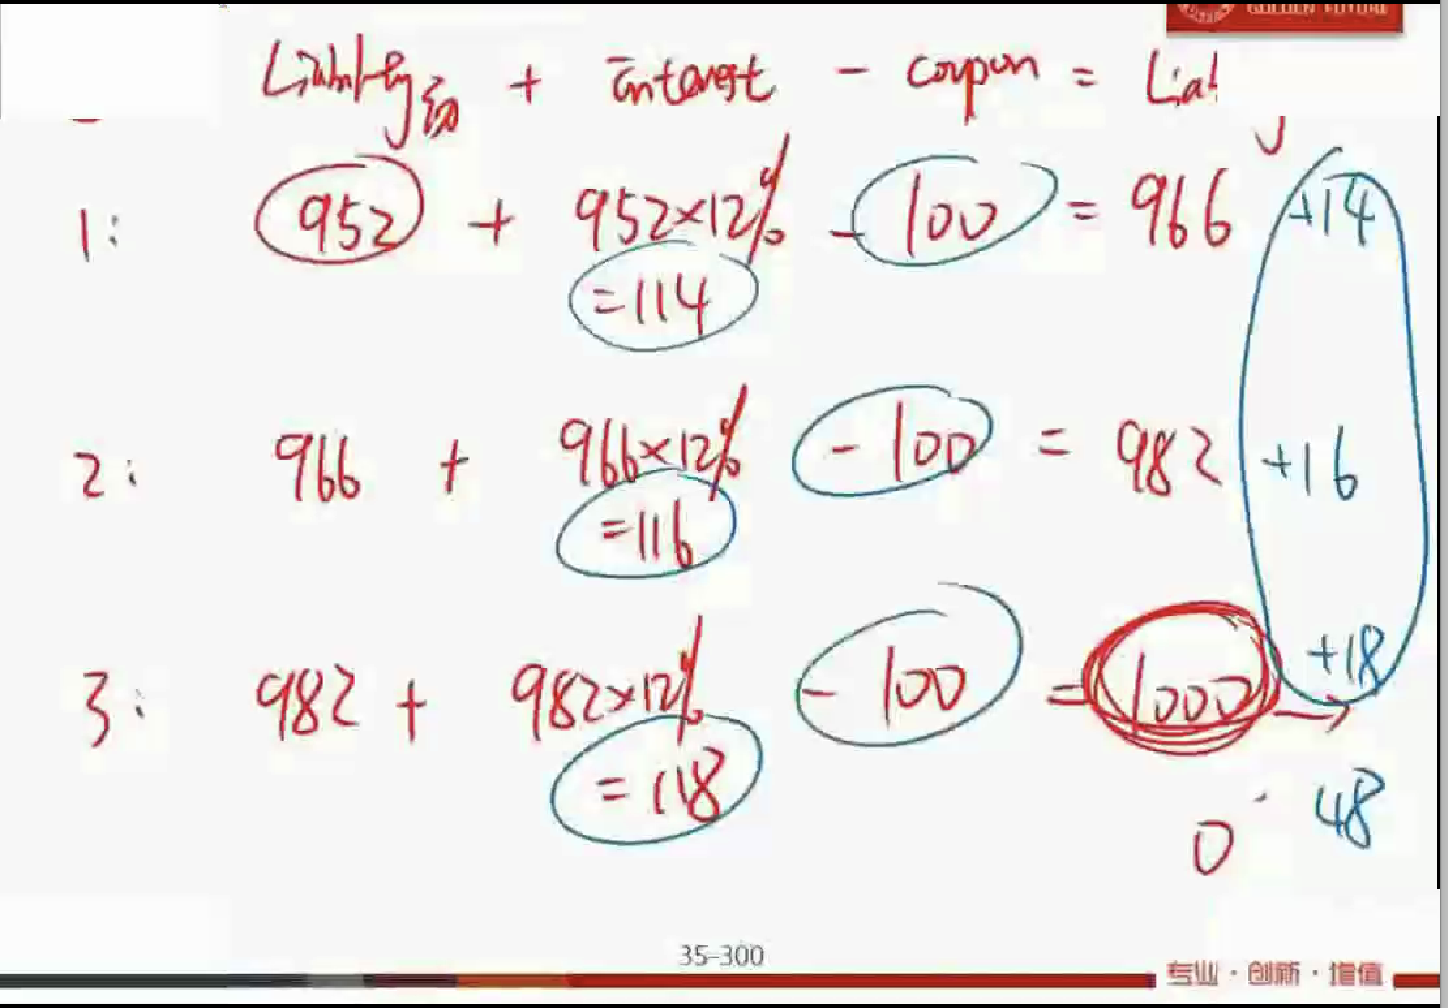 GOLDEN FUTURE
Liability初 + interest - coupon = Lia
1: 952 + 952×12% - 100 = 966 +14
=114
2: 966 + 966×12% - 100 = 982 +16
=116
3: 982 + 982×12% - 100 = 1000 → +18
=118
0 48
35-300
专业·创新·增值